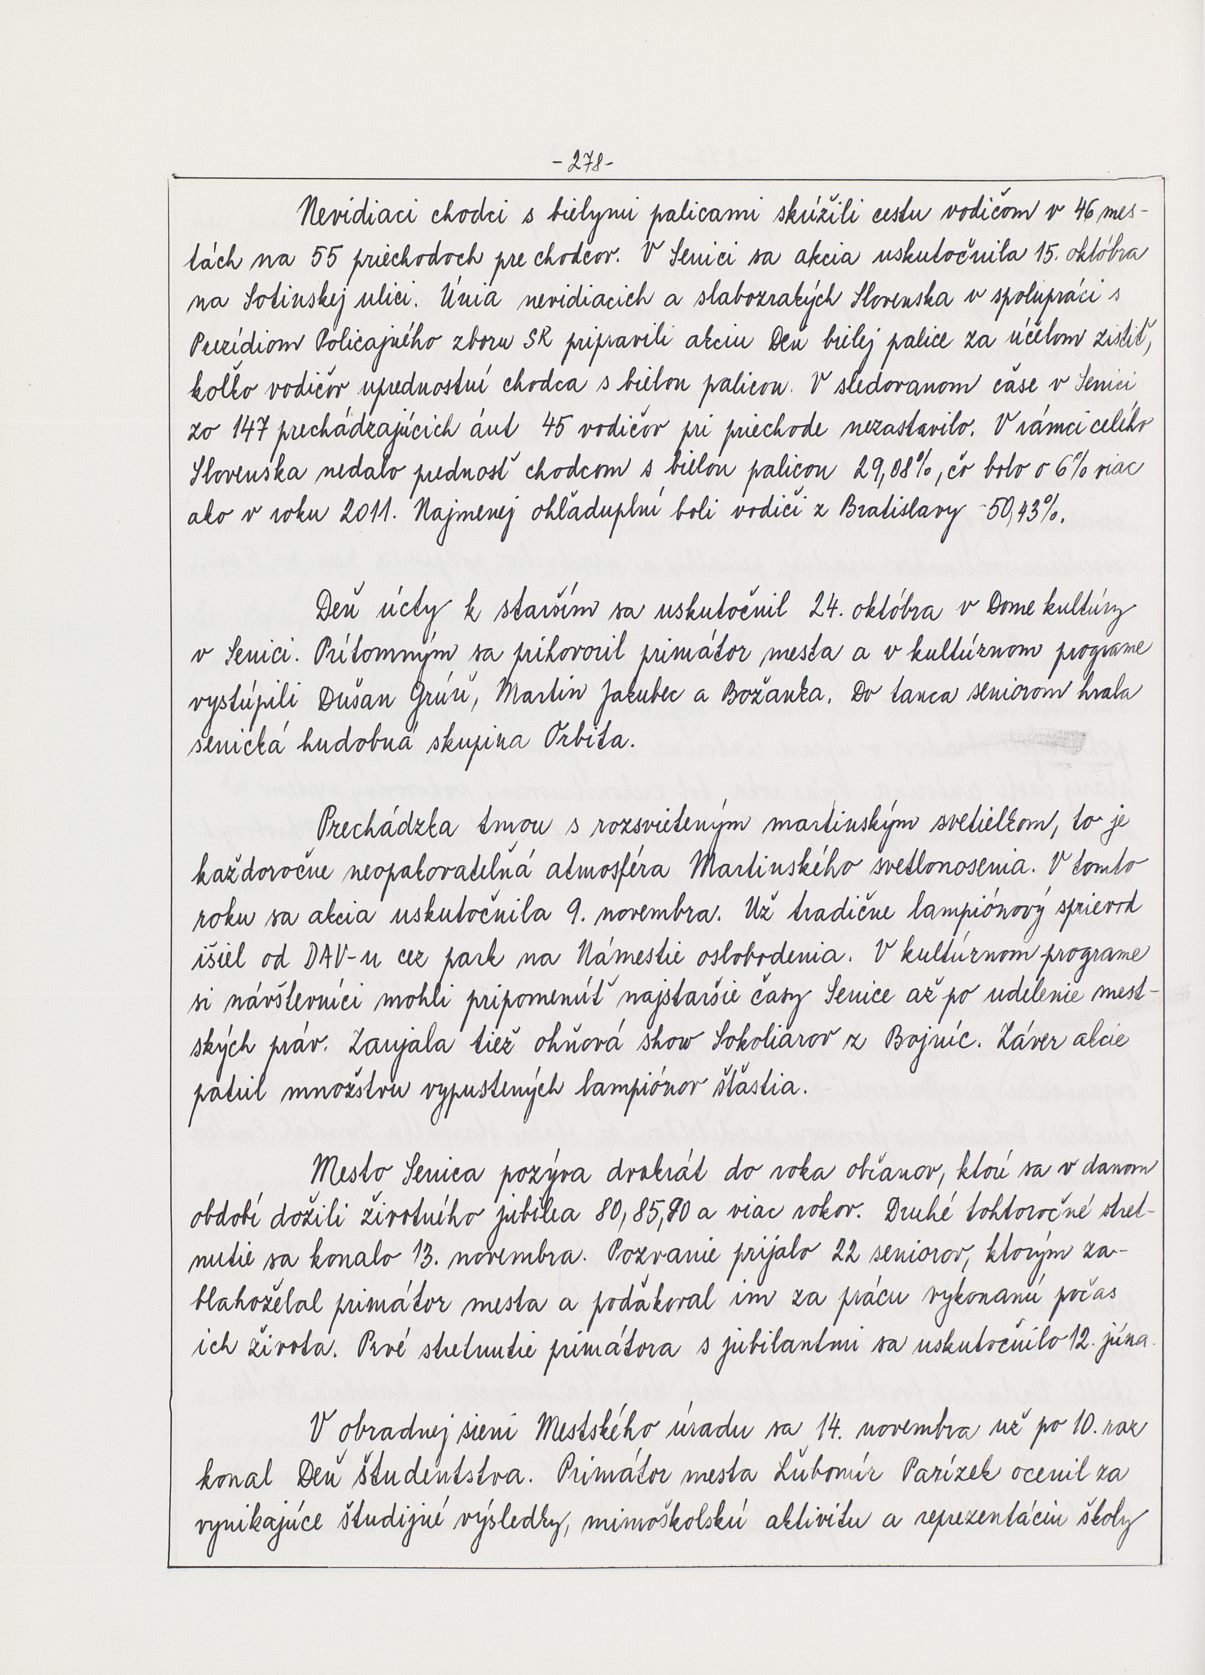 - 278 -
Nevidiaci chodci s bielymi palicami skúžili cestu vodičom v 46 mes-
tách na 55 priechodoch pre chodcov. V Senici sa akcia uskutočnila 15. októbra
na Sotinskej ulici. Únia nevidiacich a slabozrakých Slovenska v spolupráci s
Prezídiom Policajného zboru SR pripravili akciu Deň bielej palice za účelom zistiť,
koľko vodičov uprednostní chodca s bielou palicou. V sledovanom čase v Senici
zo 147 prechádzajúcich áut 45 vodičov pri priechode nezastavilo. V rámci celého
Slovenska nedalo prednosť chodcom s bielou palicou 29,08%, čo bolo o 6% viac
ako v roku 2011. Najmenej ohľaduplní boli vodiči z Bratislavy - 50,43%.
Deň úcty k starším sa uskutočnil 24. októbra v Dome kultúry
v Senici. Prítomným sa prihovoril primátor mesta a v kultúrnom programe
vystúpili Dušan Grúň, Martin Jakubec a Božanka. Do tanca seniorom hrala
senická hudobná skupina Orbita.
Prechádzka tmou s rozsvieteným martinským svetielkom, to je
každoročne neopakovateľná atmosféra Martinského svetlonosenia. V tomto
roku sa akcia uskutočnila 9. novembra. Už tradične lampiónový sprievod
išiel od DAV-u cez park na Námestie oslobodenia. V kultúrnom programe
si návštevníci mohli pripomenúť najstaršie časy Senice až po udelenie mest-
ských práv. Zaujala tiež ohňová show Sokoliarov z Bojníc. Záver akcie
patril množstvu vypustených lampiónov šťastia.
Mesto Senica pozýva dvakrát do roka občanov, ktorí sa v danom
období dožili životného jubilea 80, 85, 90 a viac rokov. Druhé tohtoročné stret-
nutie sa konalo 13. novembra. Pozvanie prijalo 22 seniorov, ktorým za-
blahoželal primátor mesta a poďakoval im za prácu vykonanú počas
ich života. Prvé stretnutie primátora s jubilantmi sa uskutočnilo 12. júna.
V obradnej sieni Mestského úradu sa 14. novembra už po 10. raz
konal Deň študentstva. Primátor mesta Ľubomír Parízek ocenil za
vynikajúce študijné výsledky, mimoškolskú aktivitu a reprezentáciu školy